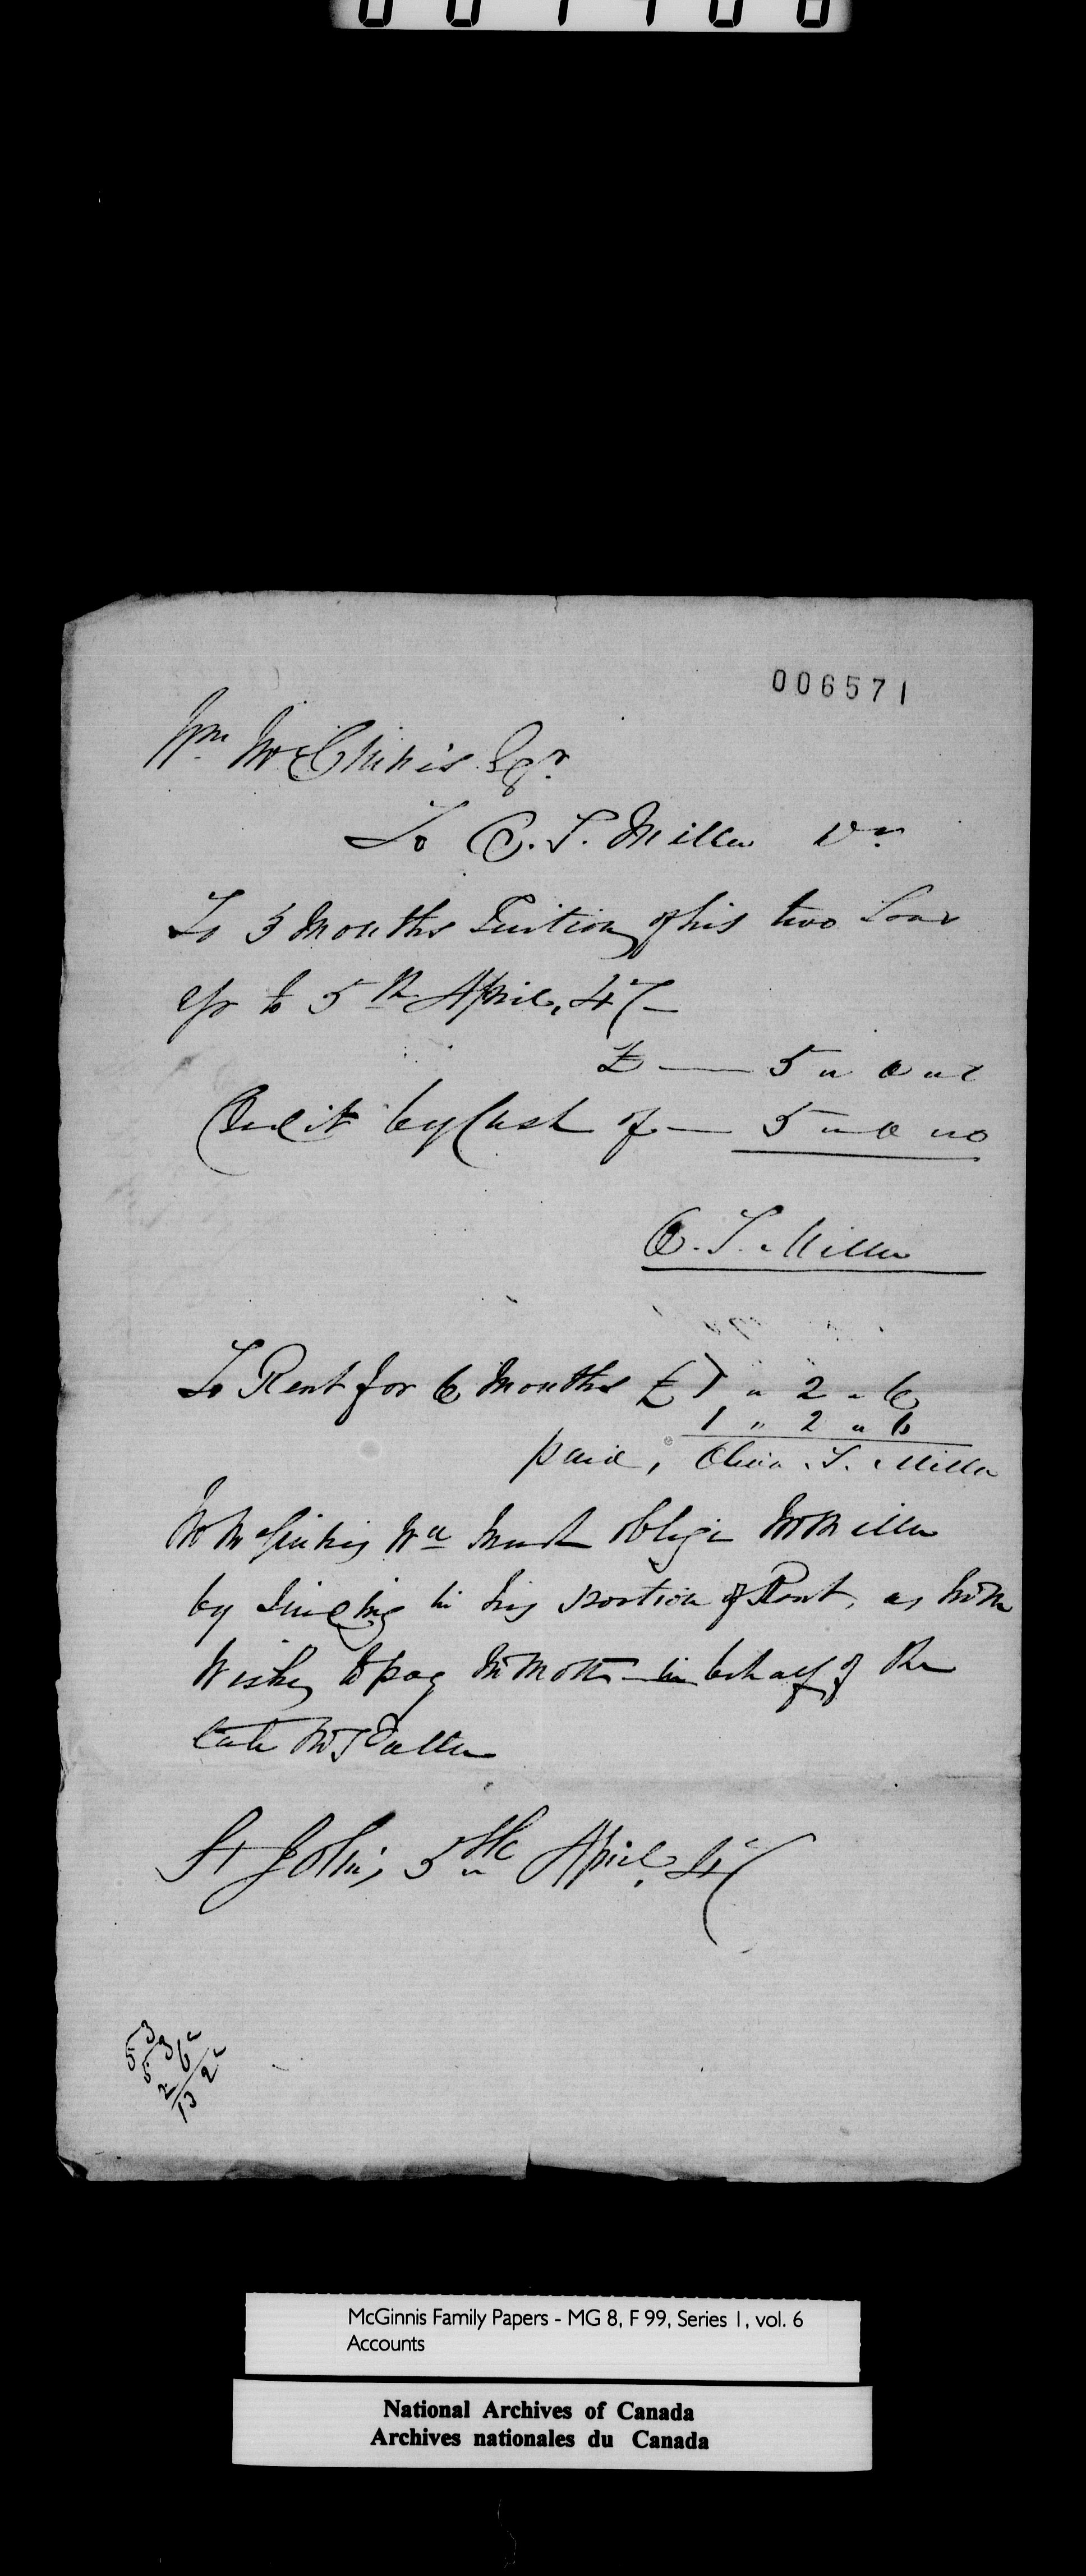 006571
Wm McGinnis Esqr
To O. T. Miller Dr
To 3 Months Tuition of his two Sons
up to 5th April, 47
£ — 5 " 0 " 0
Credit by Cash of — 5 " 0 " 0
O. T. Miller
To Rent for 6 Months £1 " 2 " 6
1 " 2 " 6
paid, T. Miller
Mr McGinnis much oblige Mr Miller
by sending in his portion of Rent, as Mr M
Wishes to pay Mr Mott in behalf of the
late Mr
St Johns 5th April, 47
5 3
5 3
2 6
13 2
McGinnis Family Papers - MG 8, F 99, Series 1, vol. 6
Accounts
National Archives of Canada
Archives nationales du Canada